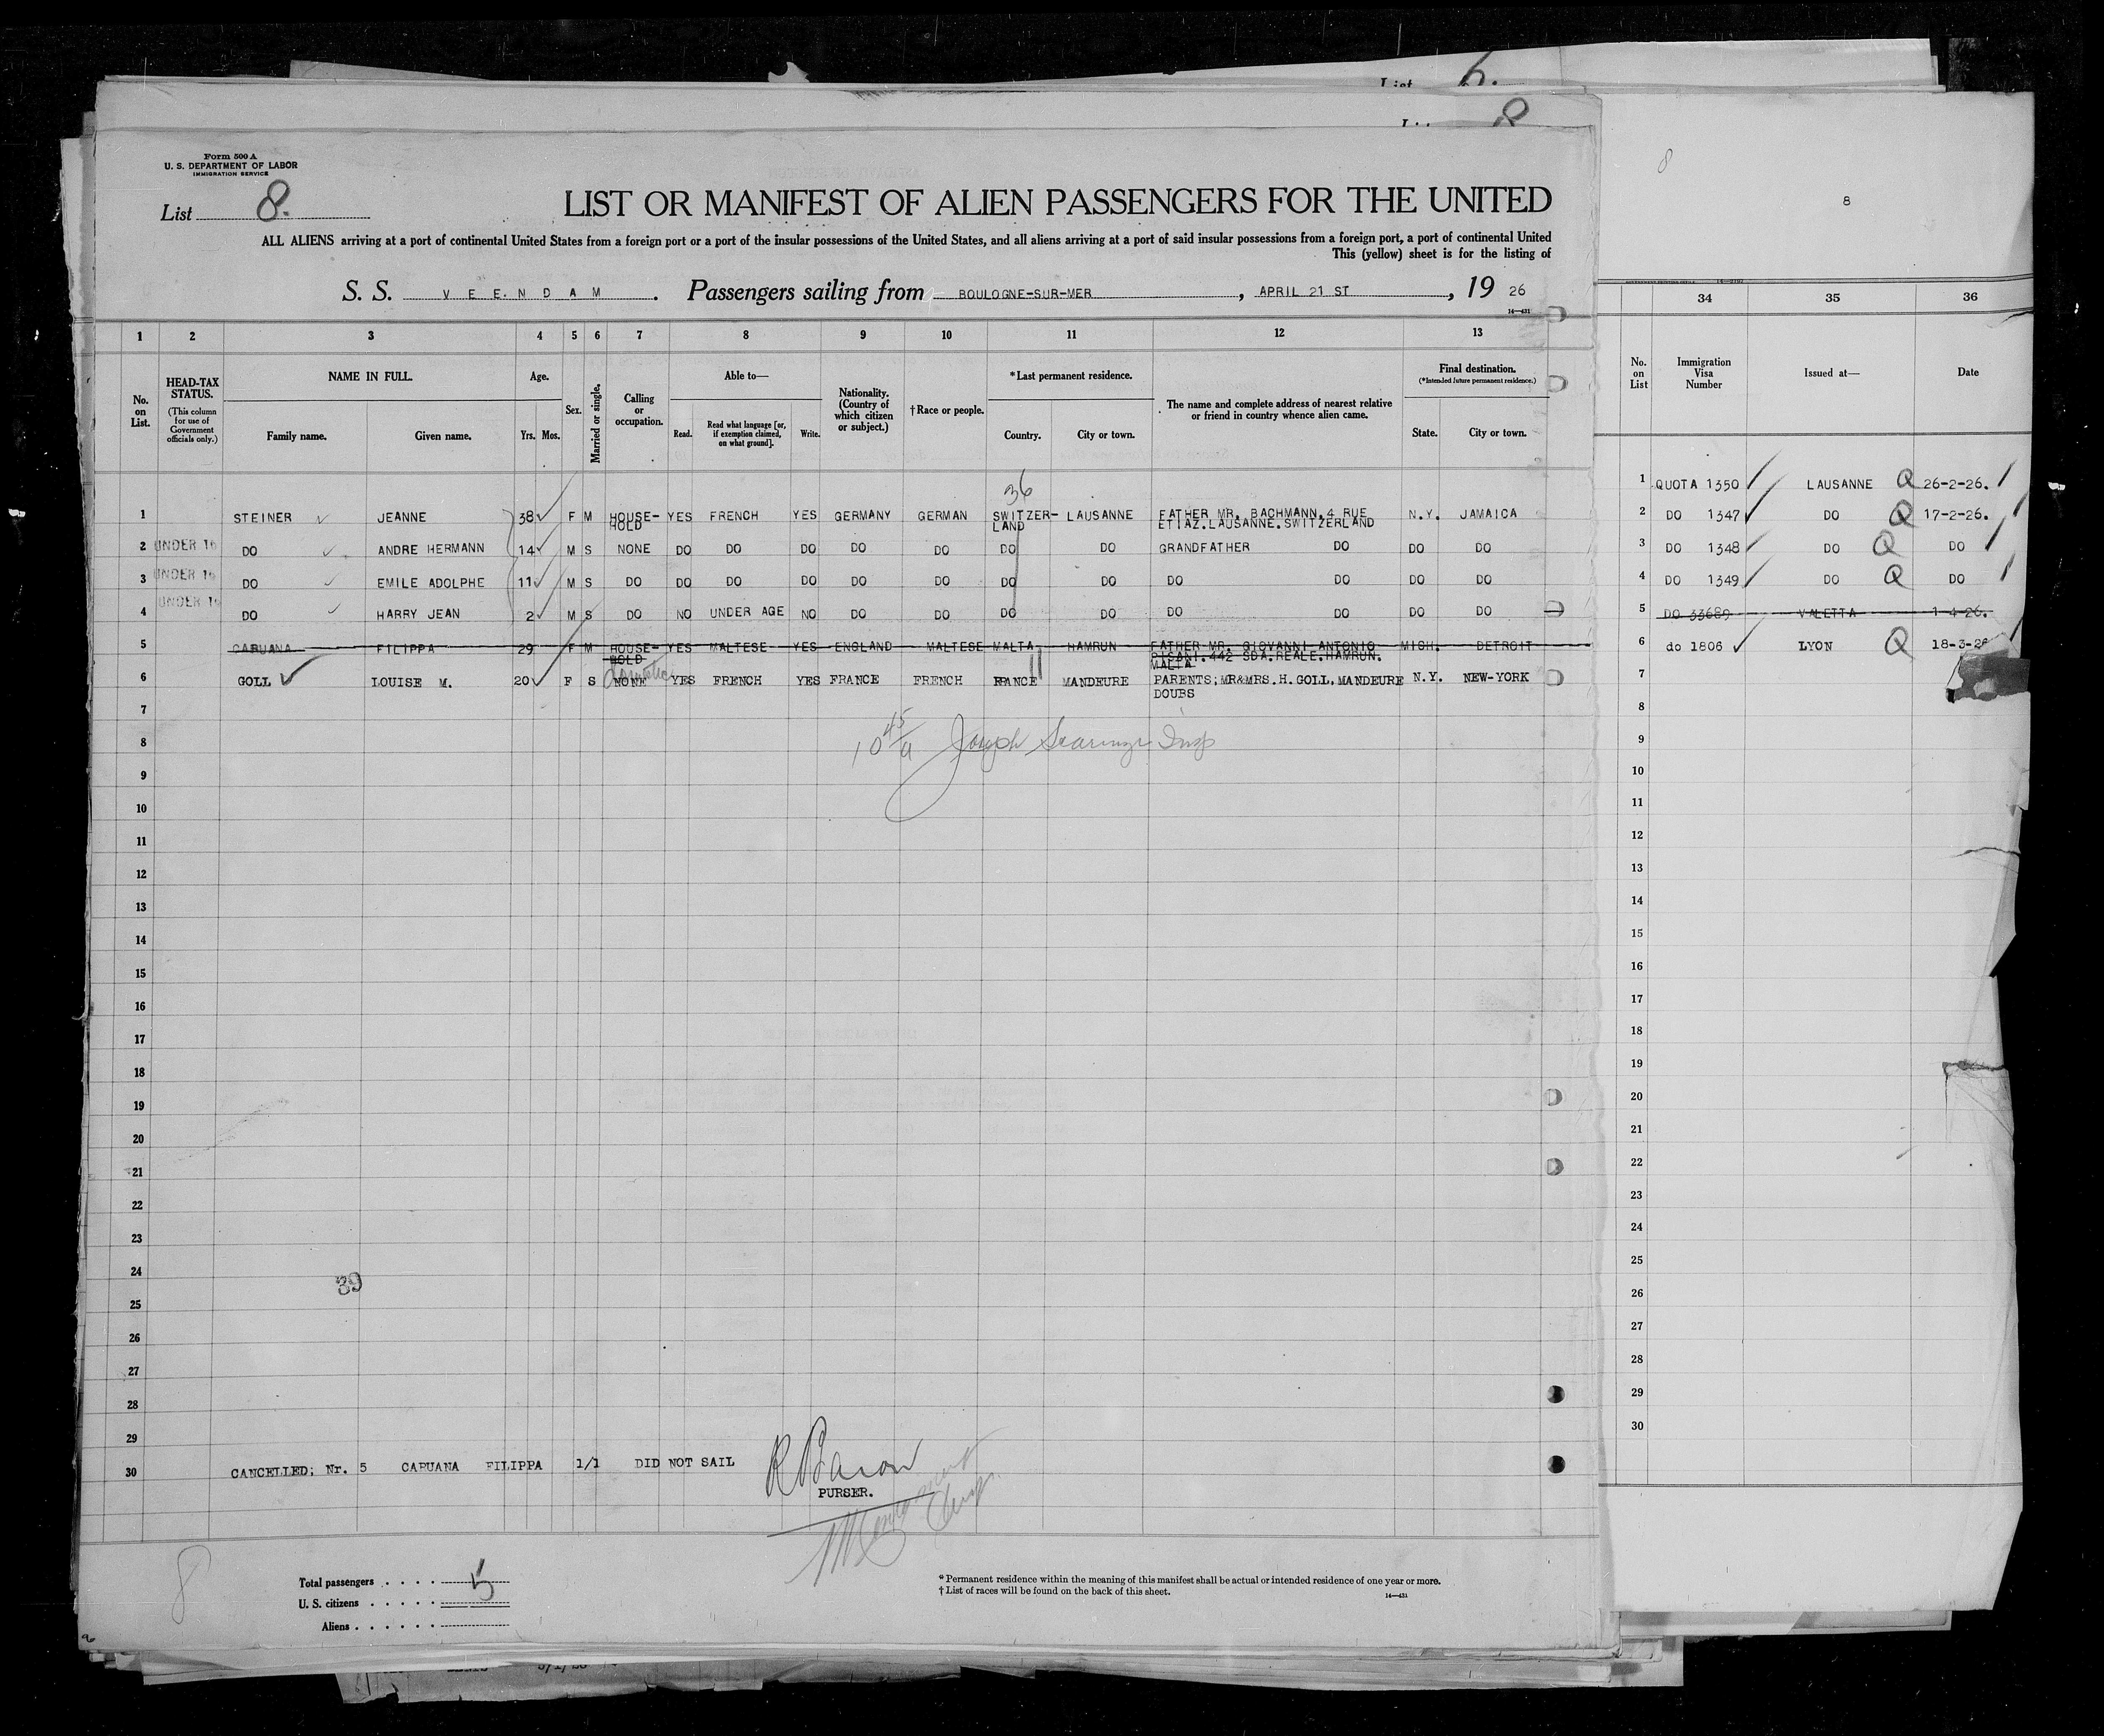 List 6.
8
Form 500 A
U. S. DEPARTMENT OF LABOR
IMMIGRATION SERVICE
List 8.
LIST OR MANIFEST OF ALIEN PASSENGERS FOR THE UNITED
ALL ALIENS arriving at a port of continental United States from a foreign port or a port of the insular possessions of the United States, and all aliens arriving at a port of said insular possessions from a foreign port, a port of continental United
This (yellow) sheet is for the listing of
S. S. VEENDAM. Passengers sailing from BOULOGNE-SUR-MER, APRIL 21 ST, 19 26
14—431
1 2 3 4 5 6 7 8 9 10 11 12 13
No. on List.
HEAD-TAX STATUS.
(This column for use of Government officials only.)
NAME IN FULL.
Family name. Given name.
Age.
Yrs. Mos.
Sex.
Married or single.
Calling or occupation.
Able to—
Read. Read what language [or, if exemption claimed, on what ground]. Write.
Nationality. (Country of which citizen or subject.)
†Race or people.
*Last permanent residence.
Country. City or town.
The name and complete address of nearest relative or friend in country whence alien came.
Final destination.
(*Intended future permanent residence.)
State. City or town.
36
1 STEINER JEANNE 38 F M HOUSE-HOLD YES FRENCH YES GERMANY GERMAN SWITZER-LAND LAUSANNE FATHER MR. BACHMANN.4 RUE ETIAZ.LAUSANNE.SWITZERLAND N.Y. JAMAICA
2 UNDER 16 DO ANDRE HERMANN 14 M S NONE DO DO DO DO DO DO DO GRANDFATHER DO DO DO
3 UNDER 16 DO EMILE ADOLPHE 11 M S DO DO DO DO DO DO DO DO DO DO DO DO
4 UNDER 16 DO HARRY JEAN 2 M S DO NO UNDER AGE NO DO DO DO DO DO DO DO DO
5 CAPUANA FILIPPA 29 F M HOUSE-HOLD YES MALTESE YES ENGLAND MALTESE MALTA HAMRUN FATHER MR. GIOVANNI ANTONIO PISANI.442 SDA.REALE.HAMRUN. MALTA MICH. DETROIT
6 GOLL LOUISE M. 20 F S NONE domestic YES FRENCH YES FRANCE FRENCH FRANCE MANDEURE PARENTS;MR&MRS.H.GOLL,MANDEURE DOUBS N.Y. NEW-YORK
11
7
8 10 45/a Joseph Insp
9
10
11
12
13
14
15
16
17
18
19
20
21
22
23
24
39
25
26
27
28
29
30 CANCELLED; Nr. 5 CAPUANA FILIPPA 1/1 DID NOT SAIL
PURSER.
8
Total passengers 5
U. S. citizens
Aliens
* Permanent residence within the meaning of this manifest shall be actual or intended residence of one year or more.
† List of races will be found on the back of this sheet.
14—431
8
8
34 35 36
No. on List
Immigration Visa Number
Issued at—
Date
1 QUOTA 1350 LAUSANNE Q 26-2-26.
2 DO 1347 DO Q 17-2-26.
3 DO 1348 DO Q DO
4 DO 1349 DO Q DO
5 DO 33689 VALETTA 1-4-26.
6 do 1806 LYON Q 18-3-26
7
8
9
10
11
12
13
14
15
16
17
18
19
20
21
22
23
24
25
26
27
28
29
30